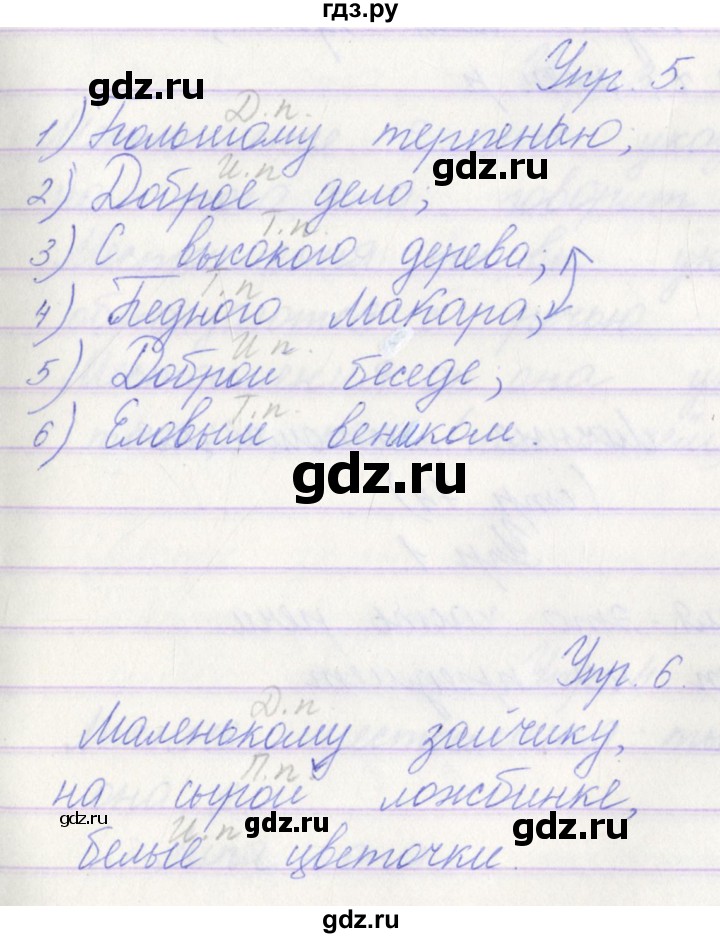 гдз.ру
Упр. 5.
gdz.ru
Д.п.
1) Большому терпенаю,
И.п
gdz.ru
2) Доброе дело;
Т.п.
3) С высокого дерева;
Т.п
4) Бедного Макара;
И п.
5) Доброй беседе;
Т.п.
6) Еловым веником.
gdz.ru
Упр. 6.
Д.п
Маленькому зайчику,
П.п.
на сырой ложбинке,
gdz.ru gdz.ru gdz.ru
И.п
белые цветочки.
gdz.ru